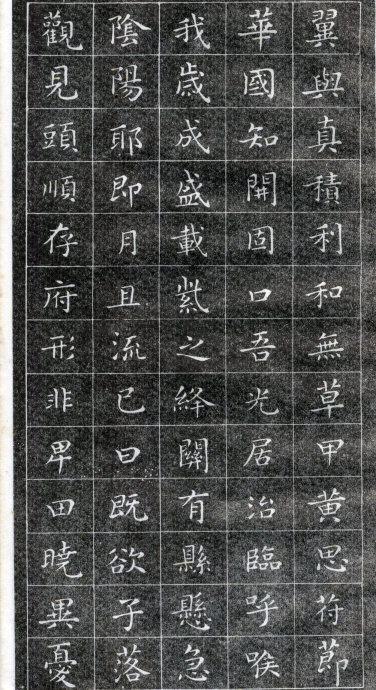 翼與真積利和無草甲黄思符節
華國知開固口吾光居治臨呼喉
我歳成盛載紫之絳關有縣懸急
陰陽耶即月且流已曰既欲子落
觀見頭順存府形非卑田曉異憂